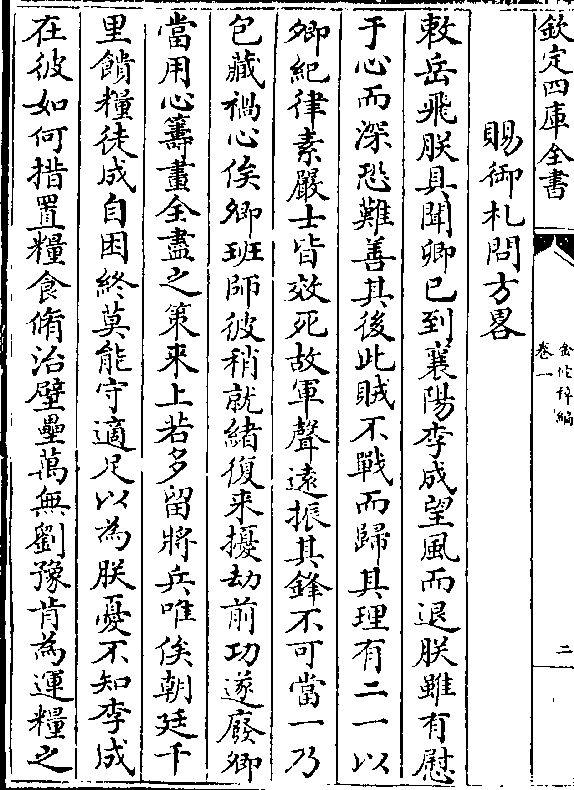 欽定四庫全書
金佗稡編
卷一
二
賜御札問方畧
敕岳飛朕具聞卿已到襄陽李成望風而退朕雖有慰
于心而深恐難善其後此賊不戰而歸其理有二一以
卿紀律素嚴士皆效死故軍聲遠振其鋒不可當一乃
包藏禍心俟卿班師彼稍就緒復来擾劫前功遂廢卿
當用心籌畫全盡之策来上若多留將兵唯俟朝廷千
里饋糧徒成自困終莫能守適足以為朕憂不知李成
在彼如何措置糧食脩治壁壘萬無劉豫肯為運糧之